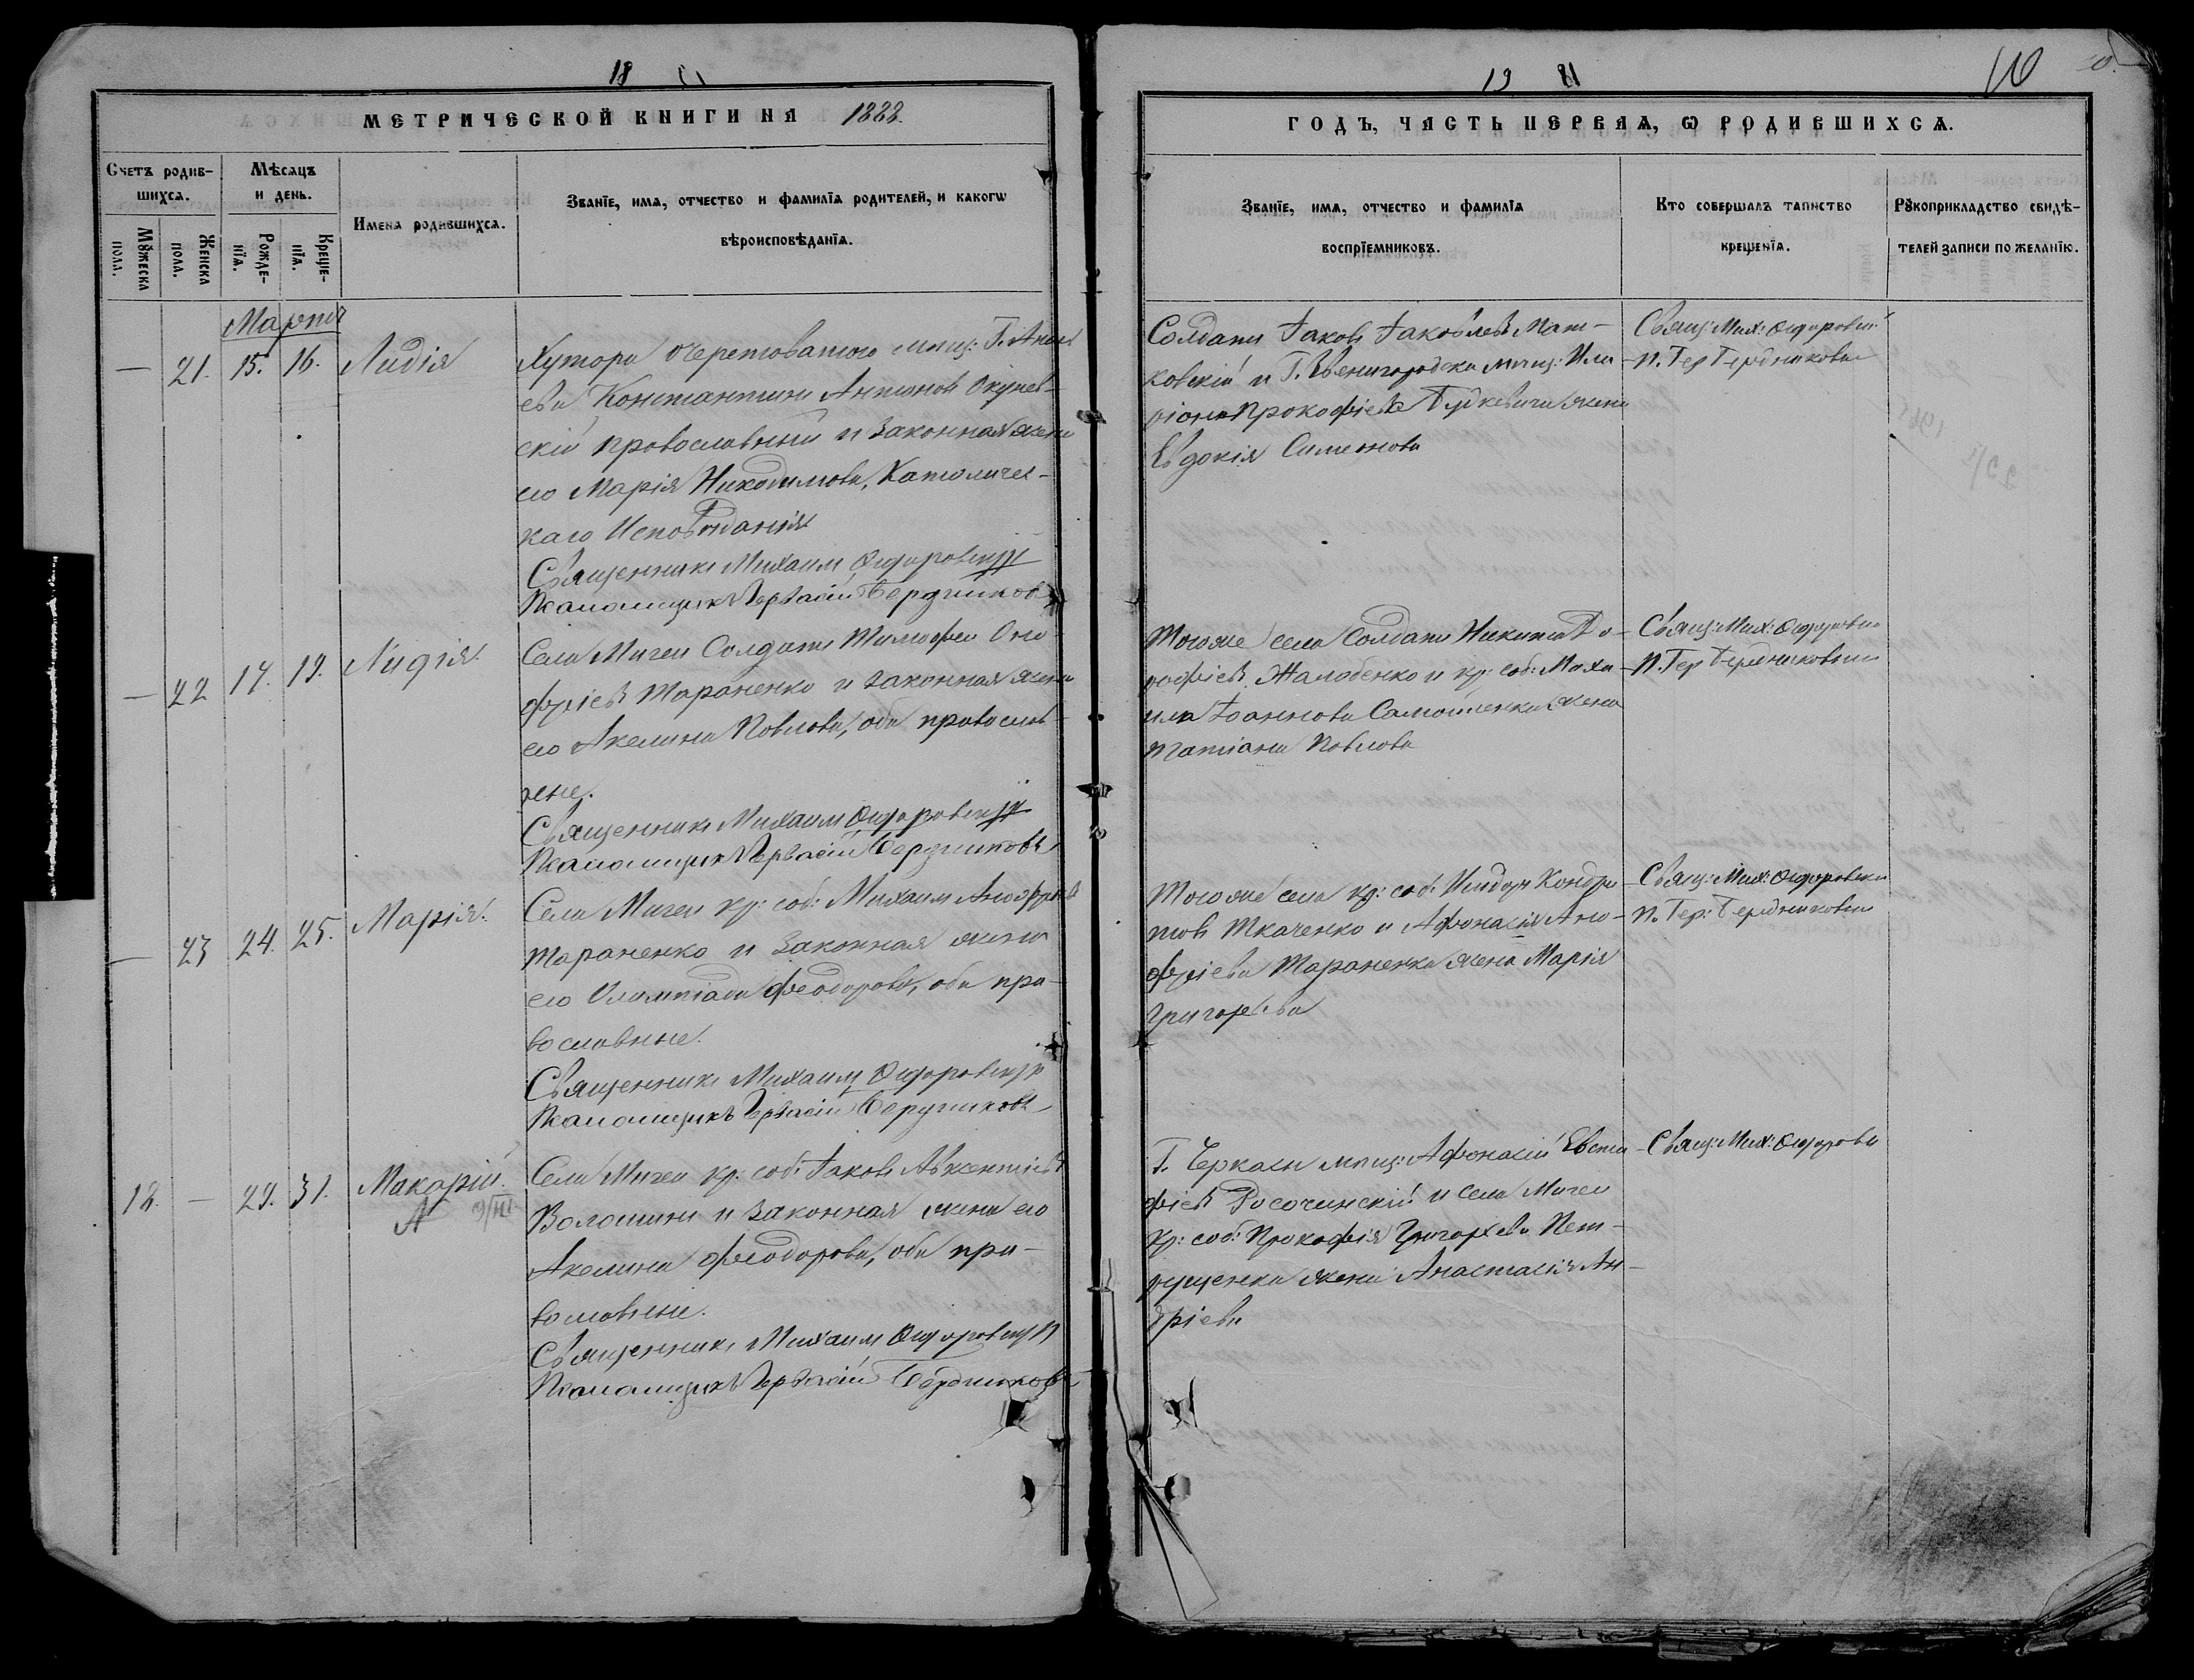 18
МЕТРИЧЕСКОЙ КНИГИ НА 1888.
Счетъ родив-
шихся.
Мѣсяцъ
и день.
Имена родившихся.
Званїе, имя, отчество и фамилїя родителей, и какогѡ
вѣроисповѣданїя.
Мꙋжеска
пола.
Женска
пола.
Рожде-
нїя.
Креще-
нїя.
Марта
— 21. 15. 16. Лидія
Хутора Очеретоватого мѣщ: Г.
ева Константинъ Антоновъ Окунев-
скій православный и законная жена
его Марія Никодимова, Католичес-
каго Исповѣданія
Священникъ Михаилъ
Псаломщикъ Гервасій Бердниковъ
— 22 17. 19. Лидія.
Села Мигеи Солдатъ Тимофей Ону-
фріевъ Тараненко и законная жена
его Акелина Павлова, оба православ-
ные.
Священникъ Михаилъ
Псаломщикъ Гервасій Бердниковъ
— 23 24. 25. Марія.
Села Мигеи кр: соб: Михаилъ Анофріевъ
Тараненко и законная жена
его Олимпіада Феодорова, оба пра-
вославные.
Священникъ Михаилъ
Псаломщикъ Гервасій Бердниковъ
18. — 29. 31. Макарій.
А 9/III
Села Мигеи кр: соб: Іаковъ Авксентіевъ
Волошинъ и законная жена его
Акелина Феодорова, оба пра-
вославные.
Священникъ Михаилъ
Псаломщикъ Гервасій Бердниковъ
19
10
ГОДЪ, ЧАСТЬ ПЕРВАЯ, Ѡ РОДИВШИХСЯ.
Званїе, имя, отчество и фамилїя
воспрїемниковъ.
Кто совершалъ таинство
крещенїя.
Рꙋкоприкладство свидѣ-
телей записи по желанїю.
Солдатъ Іаковъ Іаковлевъ Мат-
ковскій и Г. Звенигородска мѣщ: Ила-
ріона Прокофіева Будкевича жена
Евдокія Симеонова
Свящ: Мих:
П. Гер Бердниковъ
Того же села Солдатъ Никита До-
рофіевъ Жалобенко и кр: соб: Миха-
ила Іоаннова Самойленка жена
Татіана Павлова
Свящ: Мих:
П. Гер Бердниковъ
Того же села кр: соб: Исидоръ Кондра-
товъ Ткаченко и Афонасія Ано-
фріева Тараненка жена Марія
Григорьева
Свящ: Мих:
П. Гер: Бердниковъ
Г. Черкасъ мѣщ: Афонасій Евста-
фіевъ Росочинскій и села Мигеи
кр: соб: Прокофія Григорьева Пет-
рущенка жена Анастасія Ан-
дріева
Свящ: Мих: